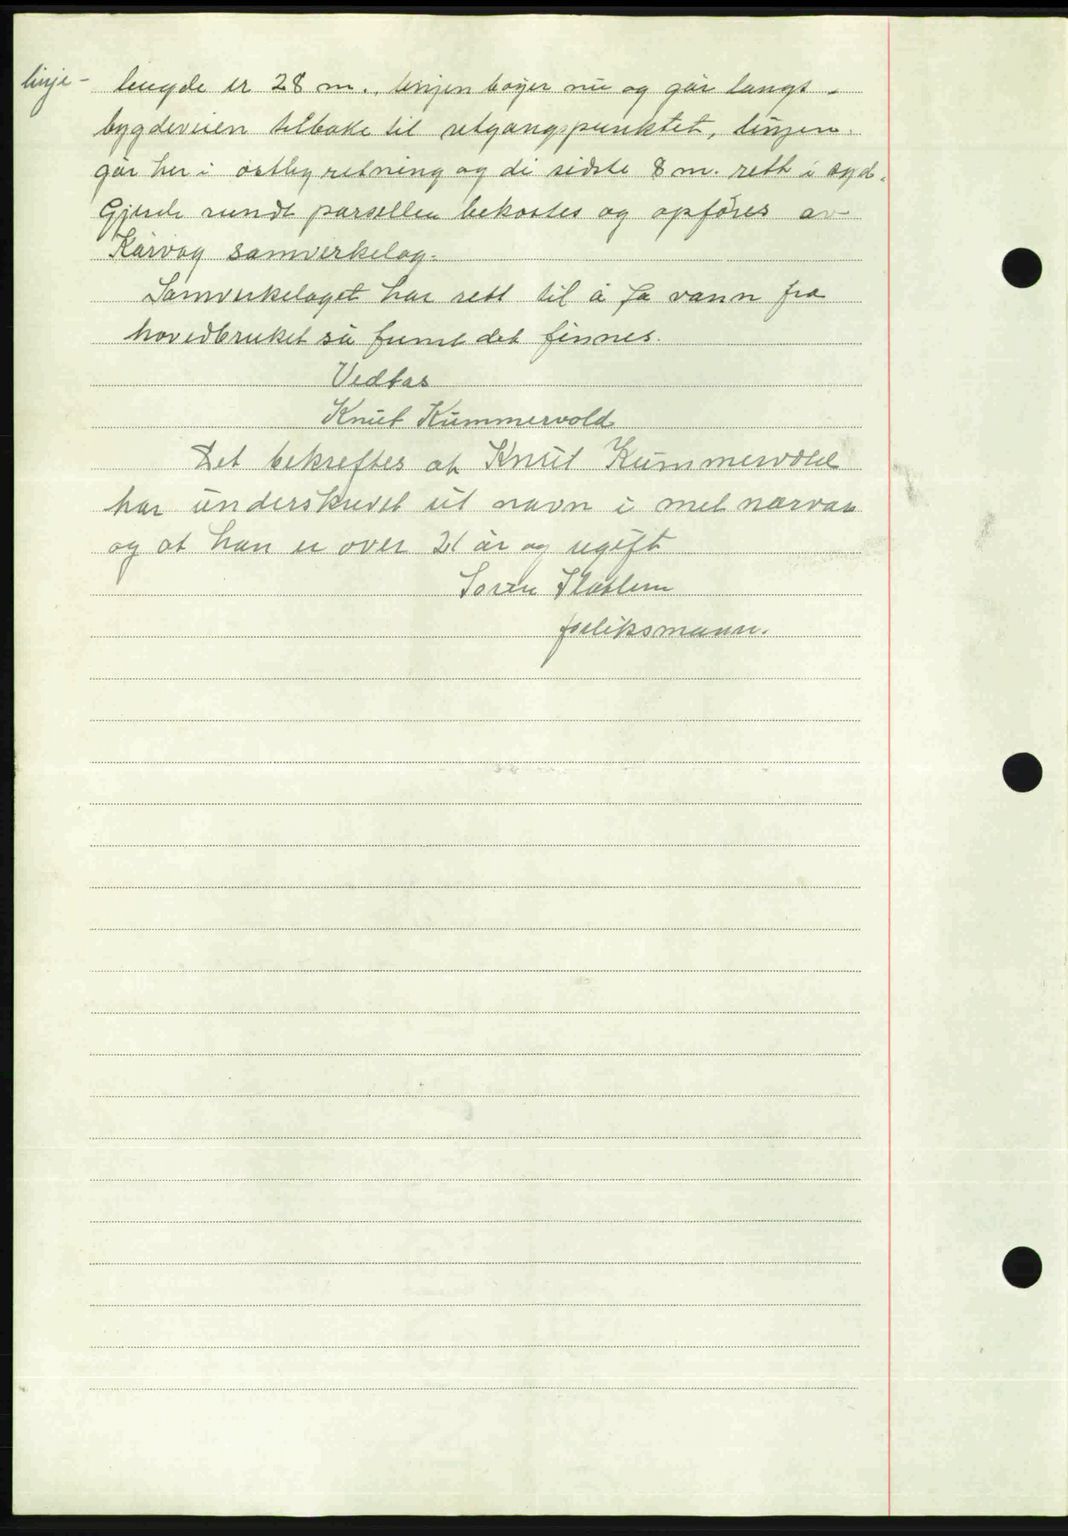 linje- lengde er 28 m., linjen bøyer nu og går langs
bygdeveien tilbake til utgangspunktet, linjen
går her i østlig retning og di sidste 8 m. rett i syd.
Gjerde rundt parsellen bekostes og opføres av
Kårvåg samvirkelag.
Samvirkelaget har rett til å få vann fra
hovedbruket så fremt det finnes.
Vedtas
Knut Kummervold
Det bekreftes at Knut Kummervold
har underskrevet sit navn i mit nærvær
og at han er over 21 år og ugift
Søren
forliksmann.